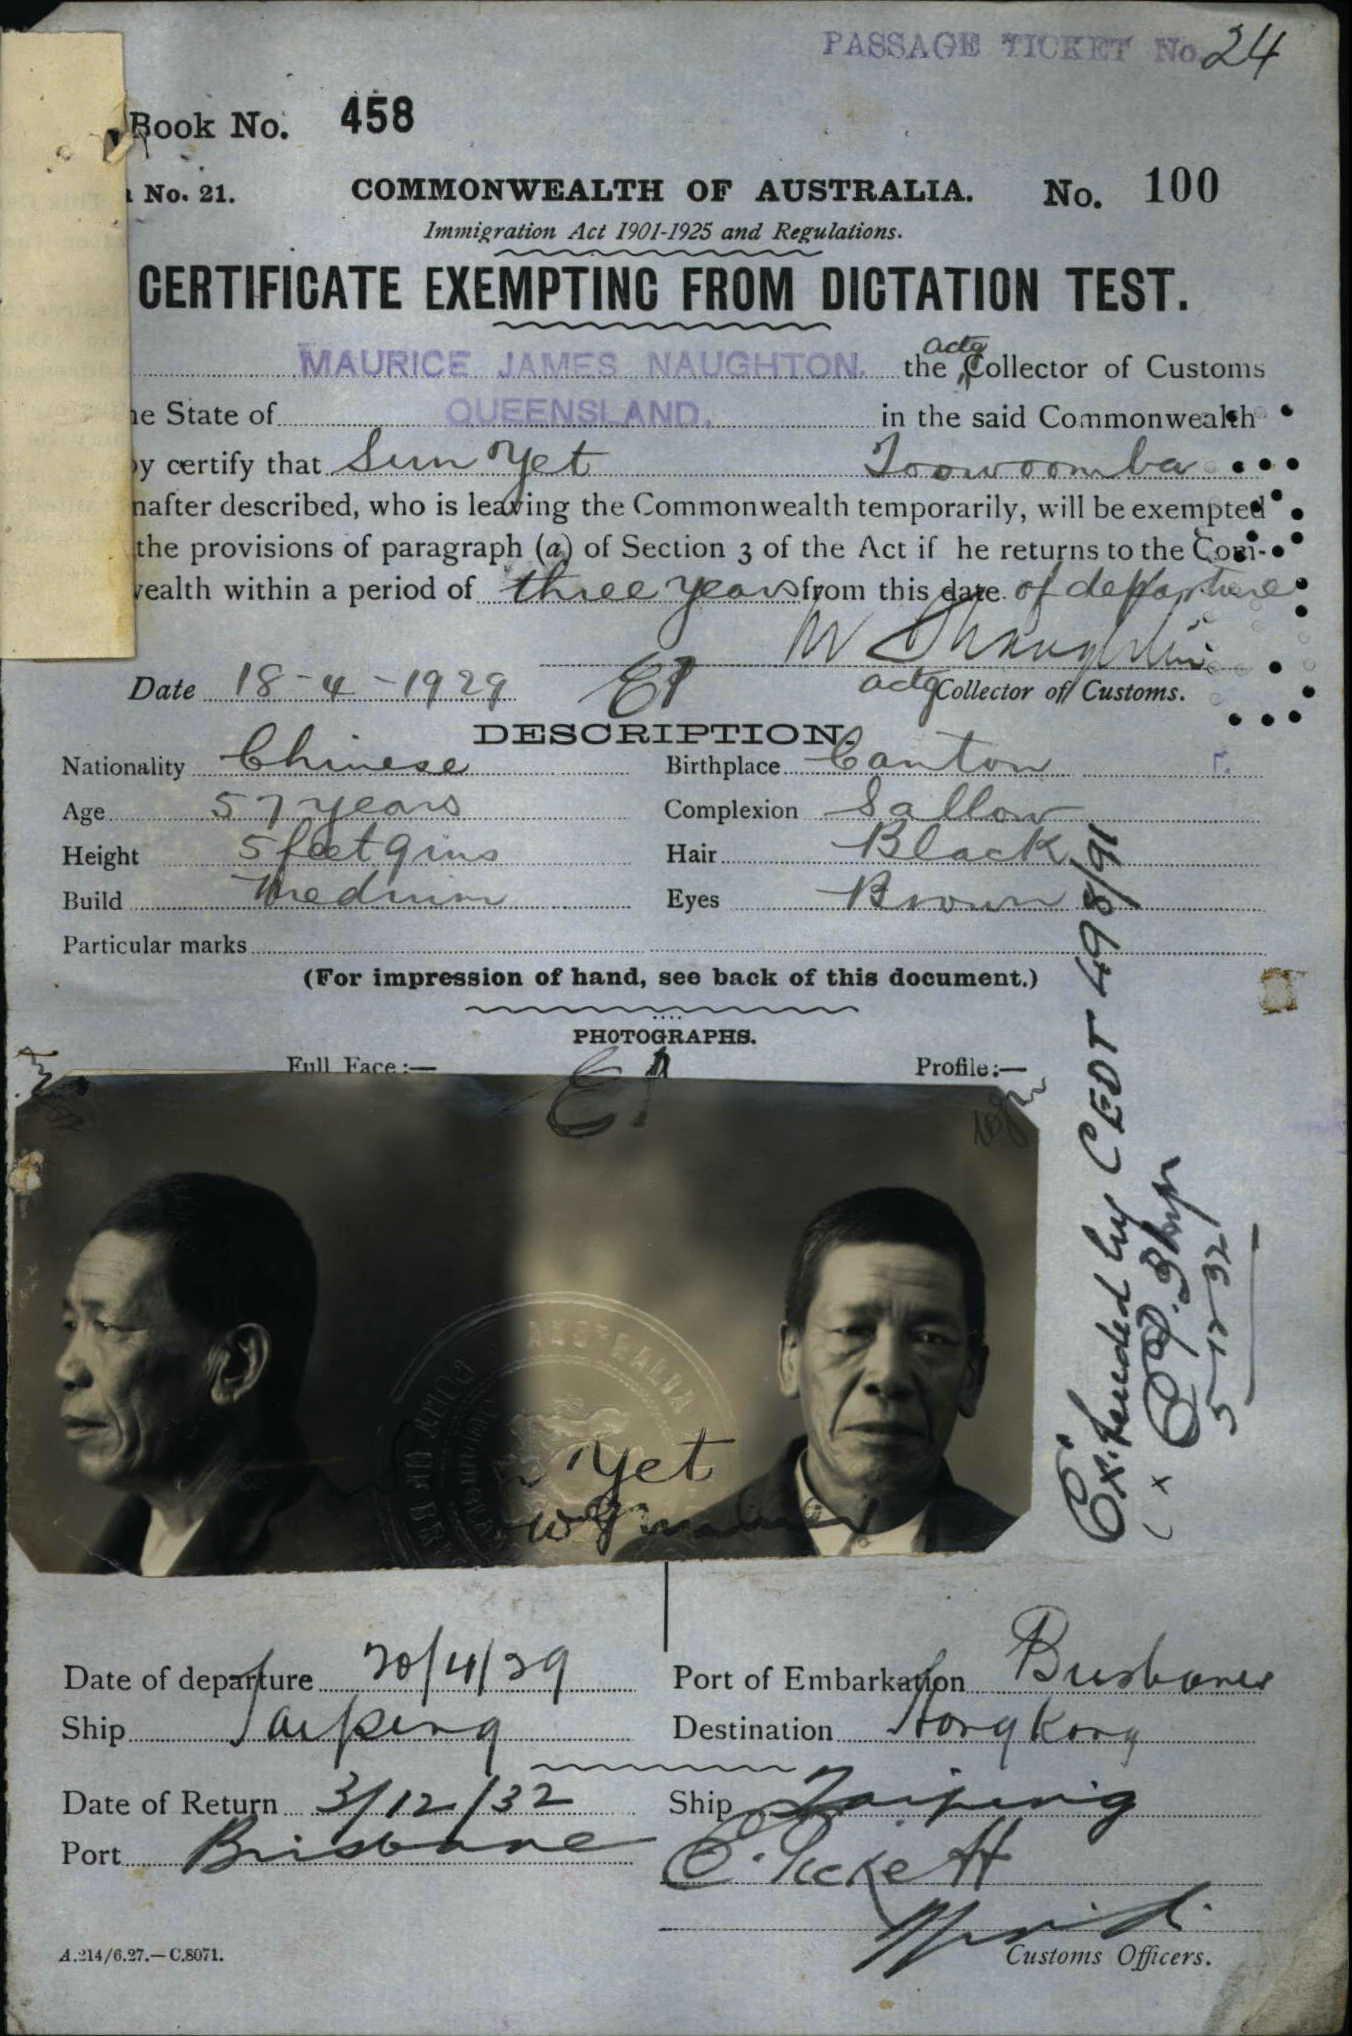 PASSAGE TICKET No. 24
Book No. 458
No. 21. COMMONWEALTH OF AUSTRALIA. No. 100
Immigration Act 1901-1925 and Regulations.
CERTIFICATE EXEMPTING FROM DICTATION TEST.
MAURICE JAMES NAUGHTON. the actg Collector of Customs
he State of QUEENSLAND. in the said Commonwealth
by certify that Sun Yet Toowoomba
nafter described, who is leaving the Commonwealth temporarily, will be exempted
the provisions of paragraph (a) of Section 3 of the Act if he returns to the Com-
wealth within a period of three years from this date of departure
Date 18-4-1929 actg Collector of Customs.
DESCRIPTION.
Nationality Chinese Birthplace Canton
Age 57 years Complexion Sallow
Height 5 feet 9 ins Hair Black
Build Medium Eyes Brown
Particular marks
(For impression of hand, see back of this document.)
PHOTOGRAPHS.
Full Face:— Profile:—
AUSTRALIA
Yet
Extended by CEDT 498/91
5-12-32
Date of departure 20/4/29 Port of Embarkation Brisbane
Ship Taiping Destination Hong Kong
Date of Return 3/12/32 Ship Taiping
Port Brisbane
Customs Officers.
A.214/6.27.—C.8071.